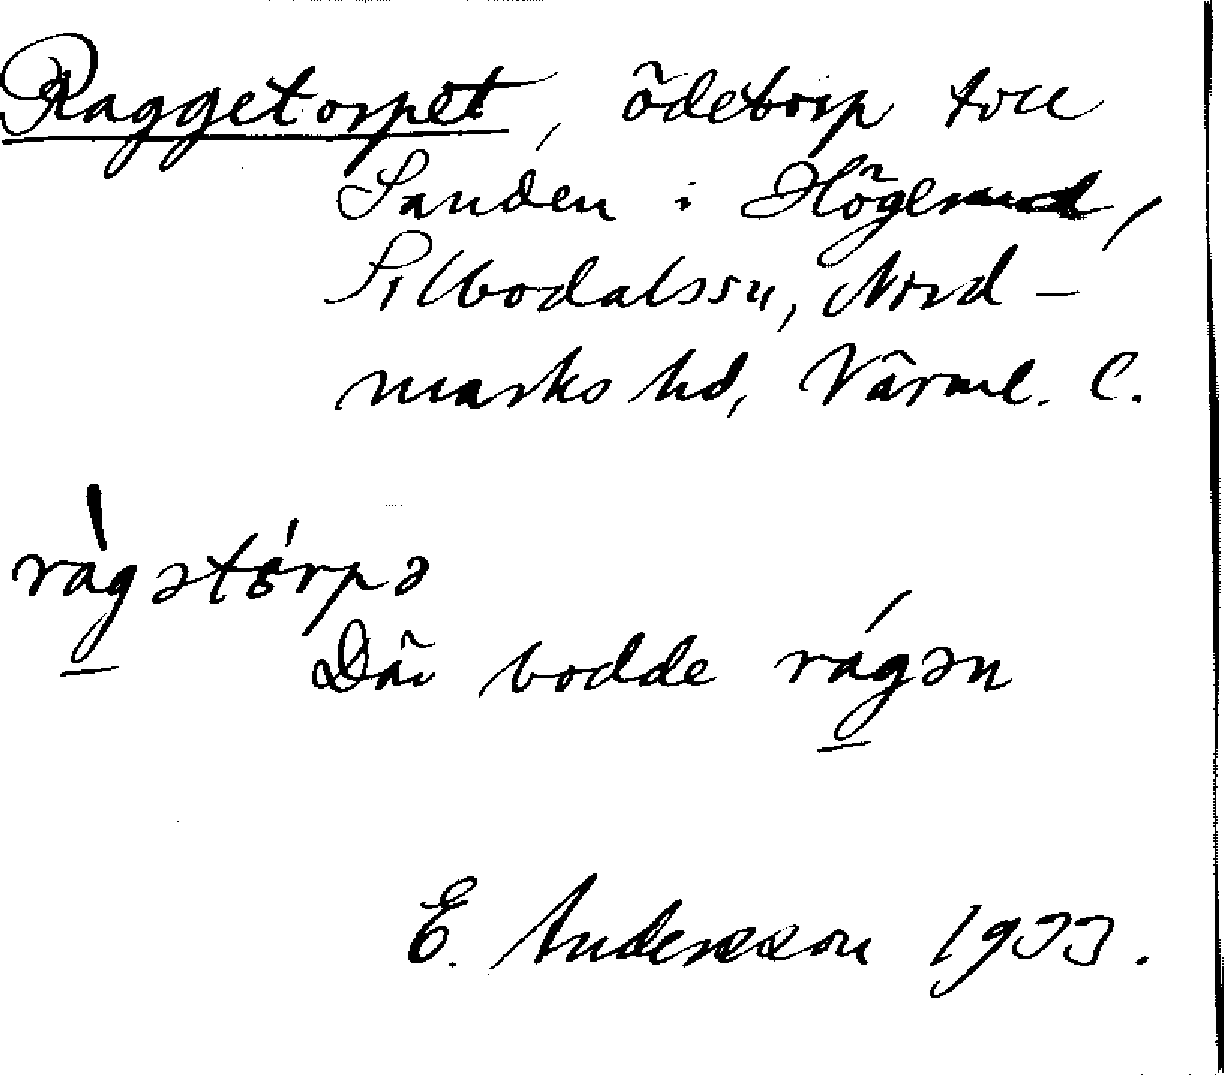 Raggetorpet, ödetorp till
Sanden i Högerud,
Silbodalssn, Nord-
marks hd, Värml. l.
rágətórpə
Där bodde rágən
E. Andersson 1933.